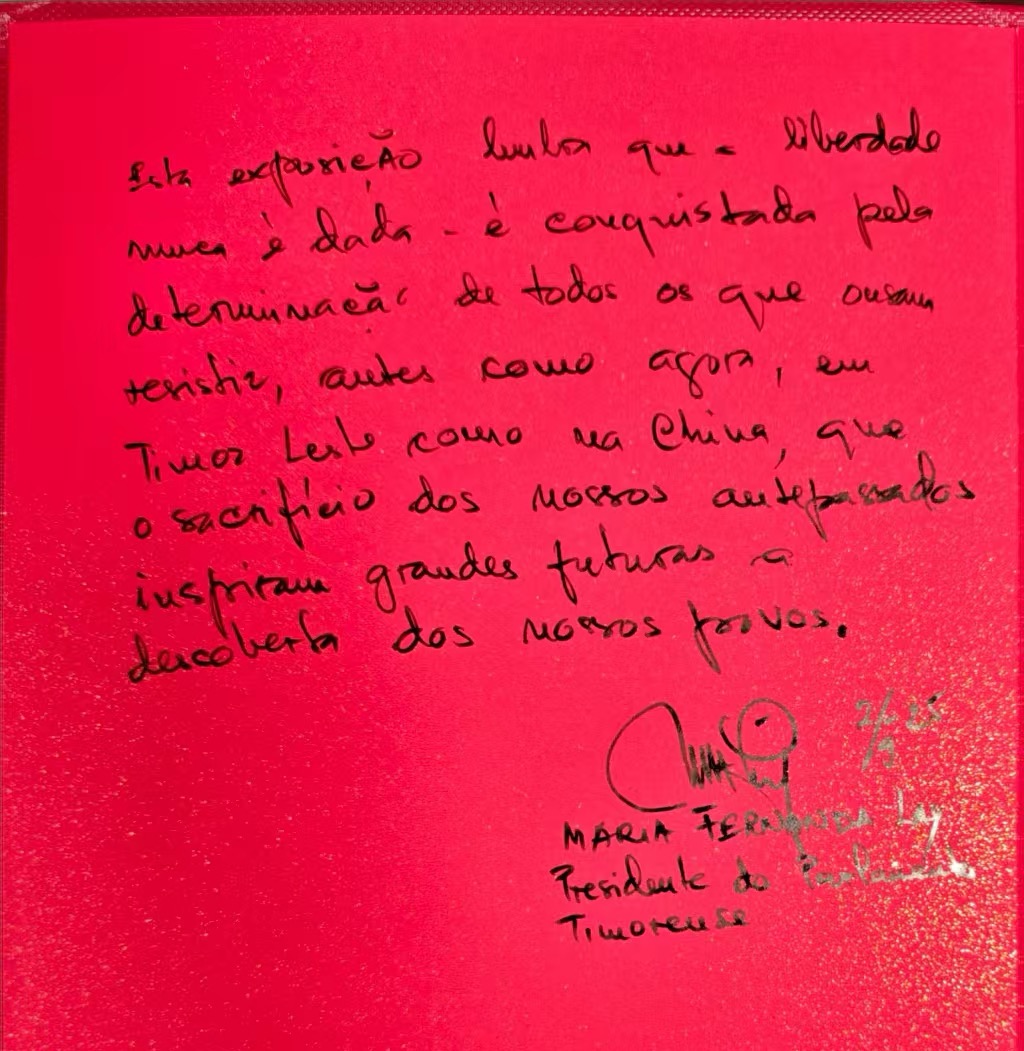 Esta exposição lembra que a liberdade
nunca é dada - é conquistada pela
determinação de todos os que ousam
resistir, antes como agora, em
Timor Leste como na China, que
o sacrifício dos nossos antepassados
inspiram grandes futuras a
descoberta dos nossos povos.
25
MARIA FERNANDA Lay
Presidente do Parlamento
Timorense